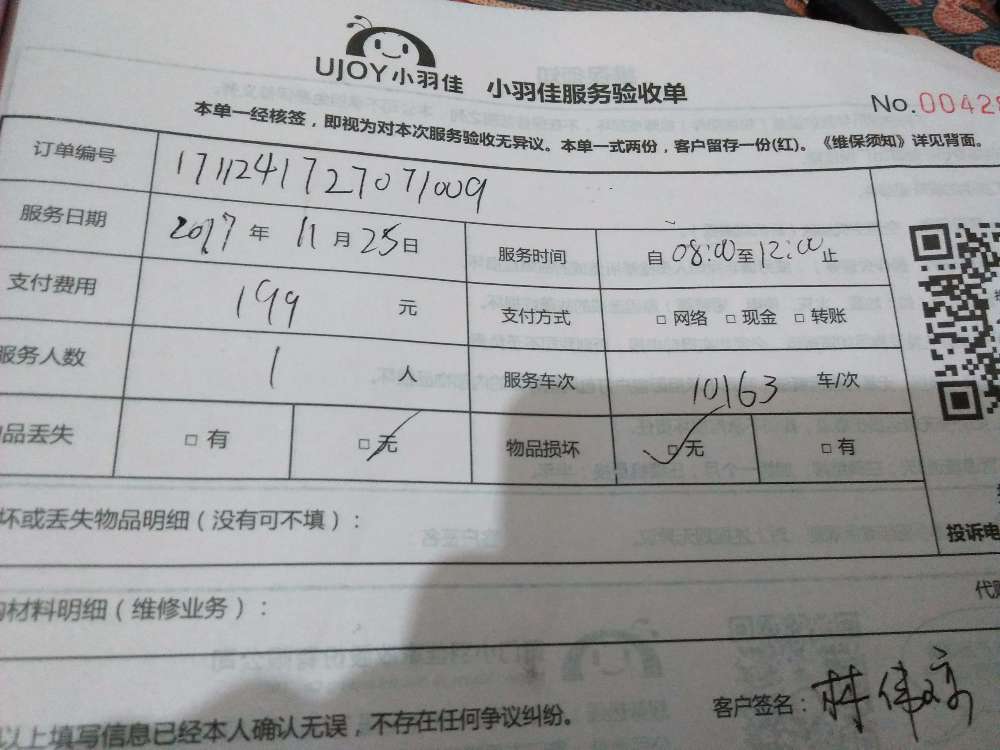 UJOY小羽佳 小羽佳服务验收单
No.0042
本单一经核签，即视为对本次服务验收无异议。本单一式两份，客户留存一份(红)。《维保须知》详见背面。
订单编号 1711241727071009
服务日期 2017年11月25日 服务时间 自08:00至12:00止
支付费用 199 元 支付方式 □网络 □现金 □转账
服务人数 1 人 服务车次 10163 车/次
品丢失 □有 □无 物品损坏 □无 □有
坏或丢失物品明细（没有可不填）：
投诉电
材料明细（维修业务）：
代购
以上填写信息已经本人确认无误，不存在任何争议纠纷。
客户签名：林伟